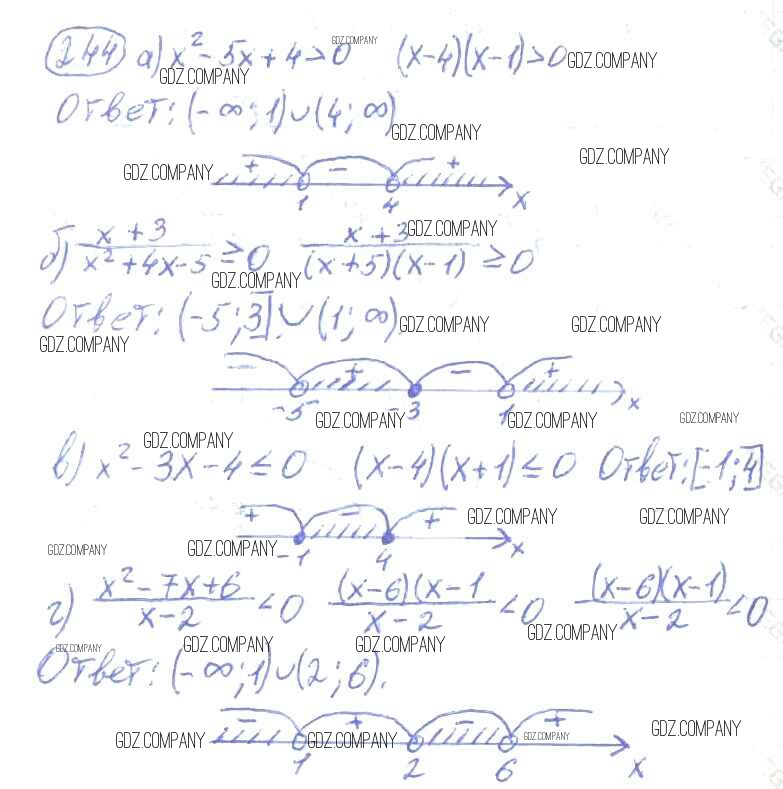 244 а) x² - 5x + 4 > 0 (x-4)(x-1) > 0
GDZ.COMPANY
GDZ.COMPANY GDZ.COMPANY
Ответ: (-∞; 1) ∪ (4; ∞)
GDZ.COMPANY
GDZ.COMPANY
GDZ.COMPANY + - +
1 4 x
б) (x+3)/(x²+4x-5) ≥ 0 (x+3)/((x+5)(x-1)) ≥ 0
GDZ.COMPANY
GDZ.COMPANY
Ответ: (-5; 3] ∪ (1; ∞)
GDZ.COMPANY GDZ.COMPANY
GDZ.COMPANY
- + - +
-5 -3 1 x
GDZ.COMPANY GDZ.COMPANY GDZ.COMPANY
GDZ.COMPANY
в) x² - 3x - 4 ≤ 0 (x-4)(x+1) ≤ 0 Ответ: [-1; 4]
+ - +
GDZ.COMPANY GDZ.COMPANY
GDZ.COMPANY GDZ.COMPANY
-1 4 x
г) (x²-7x+6)/(x-2) < 0 ((x-6)(x-1)/(x-2) < 0 ((x-6)(x-1))/(x-2) < 0
GDZ.COMPANY
GDZ.COMPANY GDZ.COMPANY GDZ.COMPANY
Ответ: (-∞; 1) ∪ (2; 6).
- + - +
GDZ.COMPANY GDZ.COMPANY GDZ.COMPANY GDZ.COMPANY
1 2 6 x